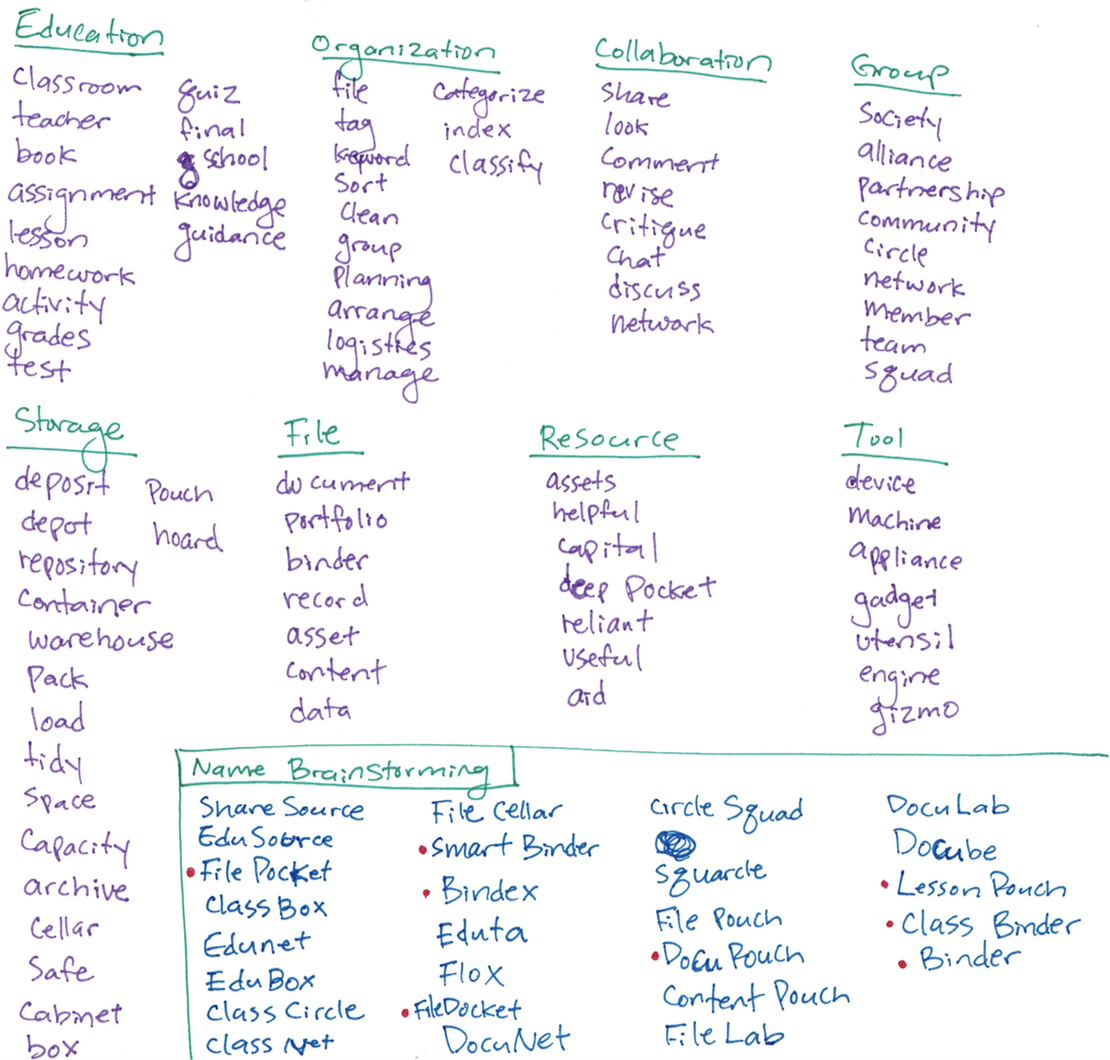 Education
classroom
teacher
book
assignment
lesson
homework
activity
grades
test
quiz
final
school
knowledge
guidance
Organization
file
tag
keyword
sort
clean
group
planning
arrange
logistics
manage
categorize
index
classify
Collaboration
share
look
comment
revise
critique
chat
discuss
network
Group
society
alliance
partnership
community
circle
network
member
team
squad
Storage
deposit
depot
repository
container
warehouse
pack
load
tidy
space
capacity
archive
cellar
safe
cabinet
box
pouch
hoard
File
document
portfolio
binder
record
asset
content
data
Resource
assets
helpful
capital
deep pocket
reliant
useful
aid
Tool
device
machine
appliance
gadget
utensil
engine
gizmo
Name Brainstorming
Share Source
EduSource
• File Pocket
Class Box
Edunet
EduBox
Class Circle
Class Net
File Cellar
• Smart Binder
• Bindex
Eduta
Flox
• FileDocket
DocuNet
Circle Squad
Squarcle
File Pouch
• Docu Pouch
Content Pouch
File Lab
DocuLab
Docube
• Lesson Pouch
• Class Binder
• Binder